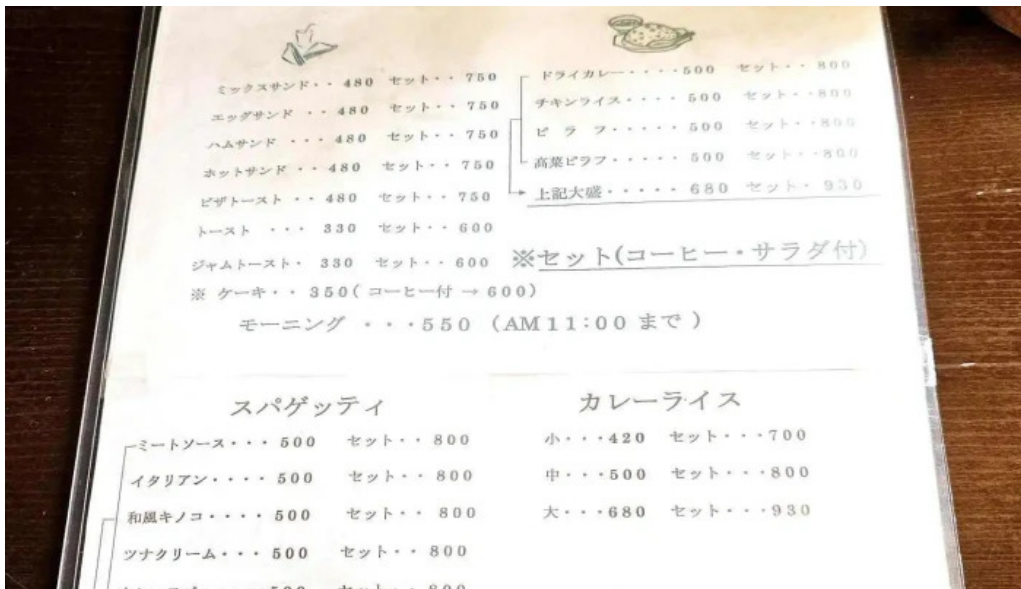 ミックスサンド・・480 セット・・750
エッグサンド・・480 セット・・750
ハムサンド・・・480 セット・・750
ホットサンド・・480 セット・・750
ピザトースト・・480 セット・・750
トースト・・・330 セット・・600
ジャムトースト・330 セット・・600
※ ケーキ・・350(コーヒー付→600)
モーニング・・・550(AM11:00まで)
ドライカレー・・・・500 セット・・800
チキンライス・・・・500 セット・・800
ピラフ・・・・・500 セット・・800
高菜ピラフ・・・・・500 セット・・800
上記大盛・・・・・680 セット・930
※セット(コーヒー・サラダ付)
スパゲッティ
ミートソース・・・500 セット・・800
イタリアン・・・・500 セット・・800
和風キノコ・・・・500 セット・・800
ツナクリーム・・・500 セット・・800
500 セット・・800
カレーライス
小・・・420 セット・・・700
中・・・500 セット・・・800
大・・・680 セット・・・930